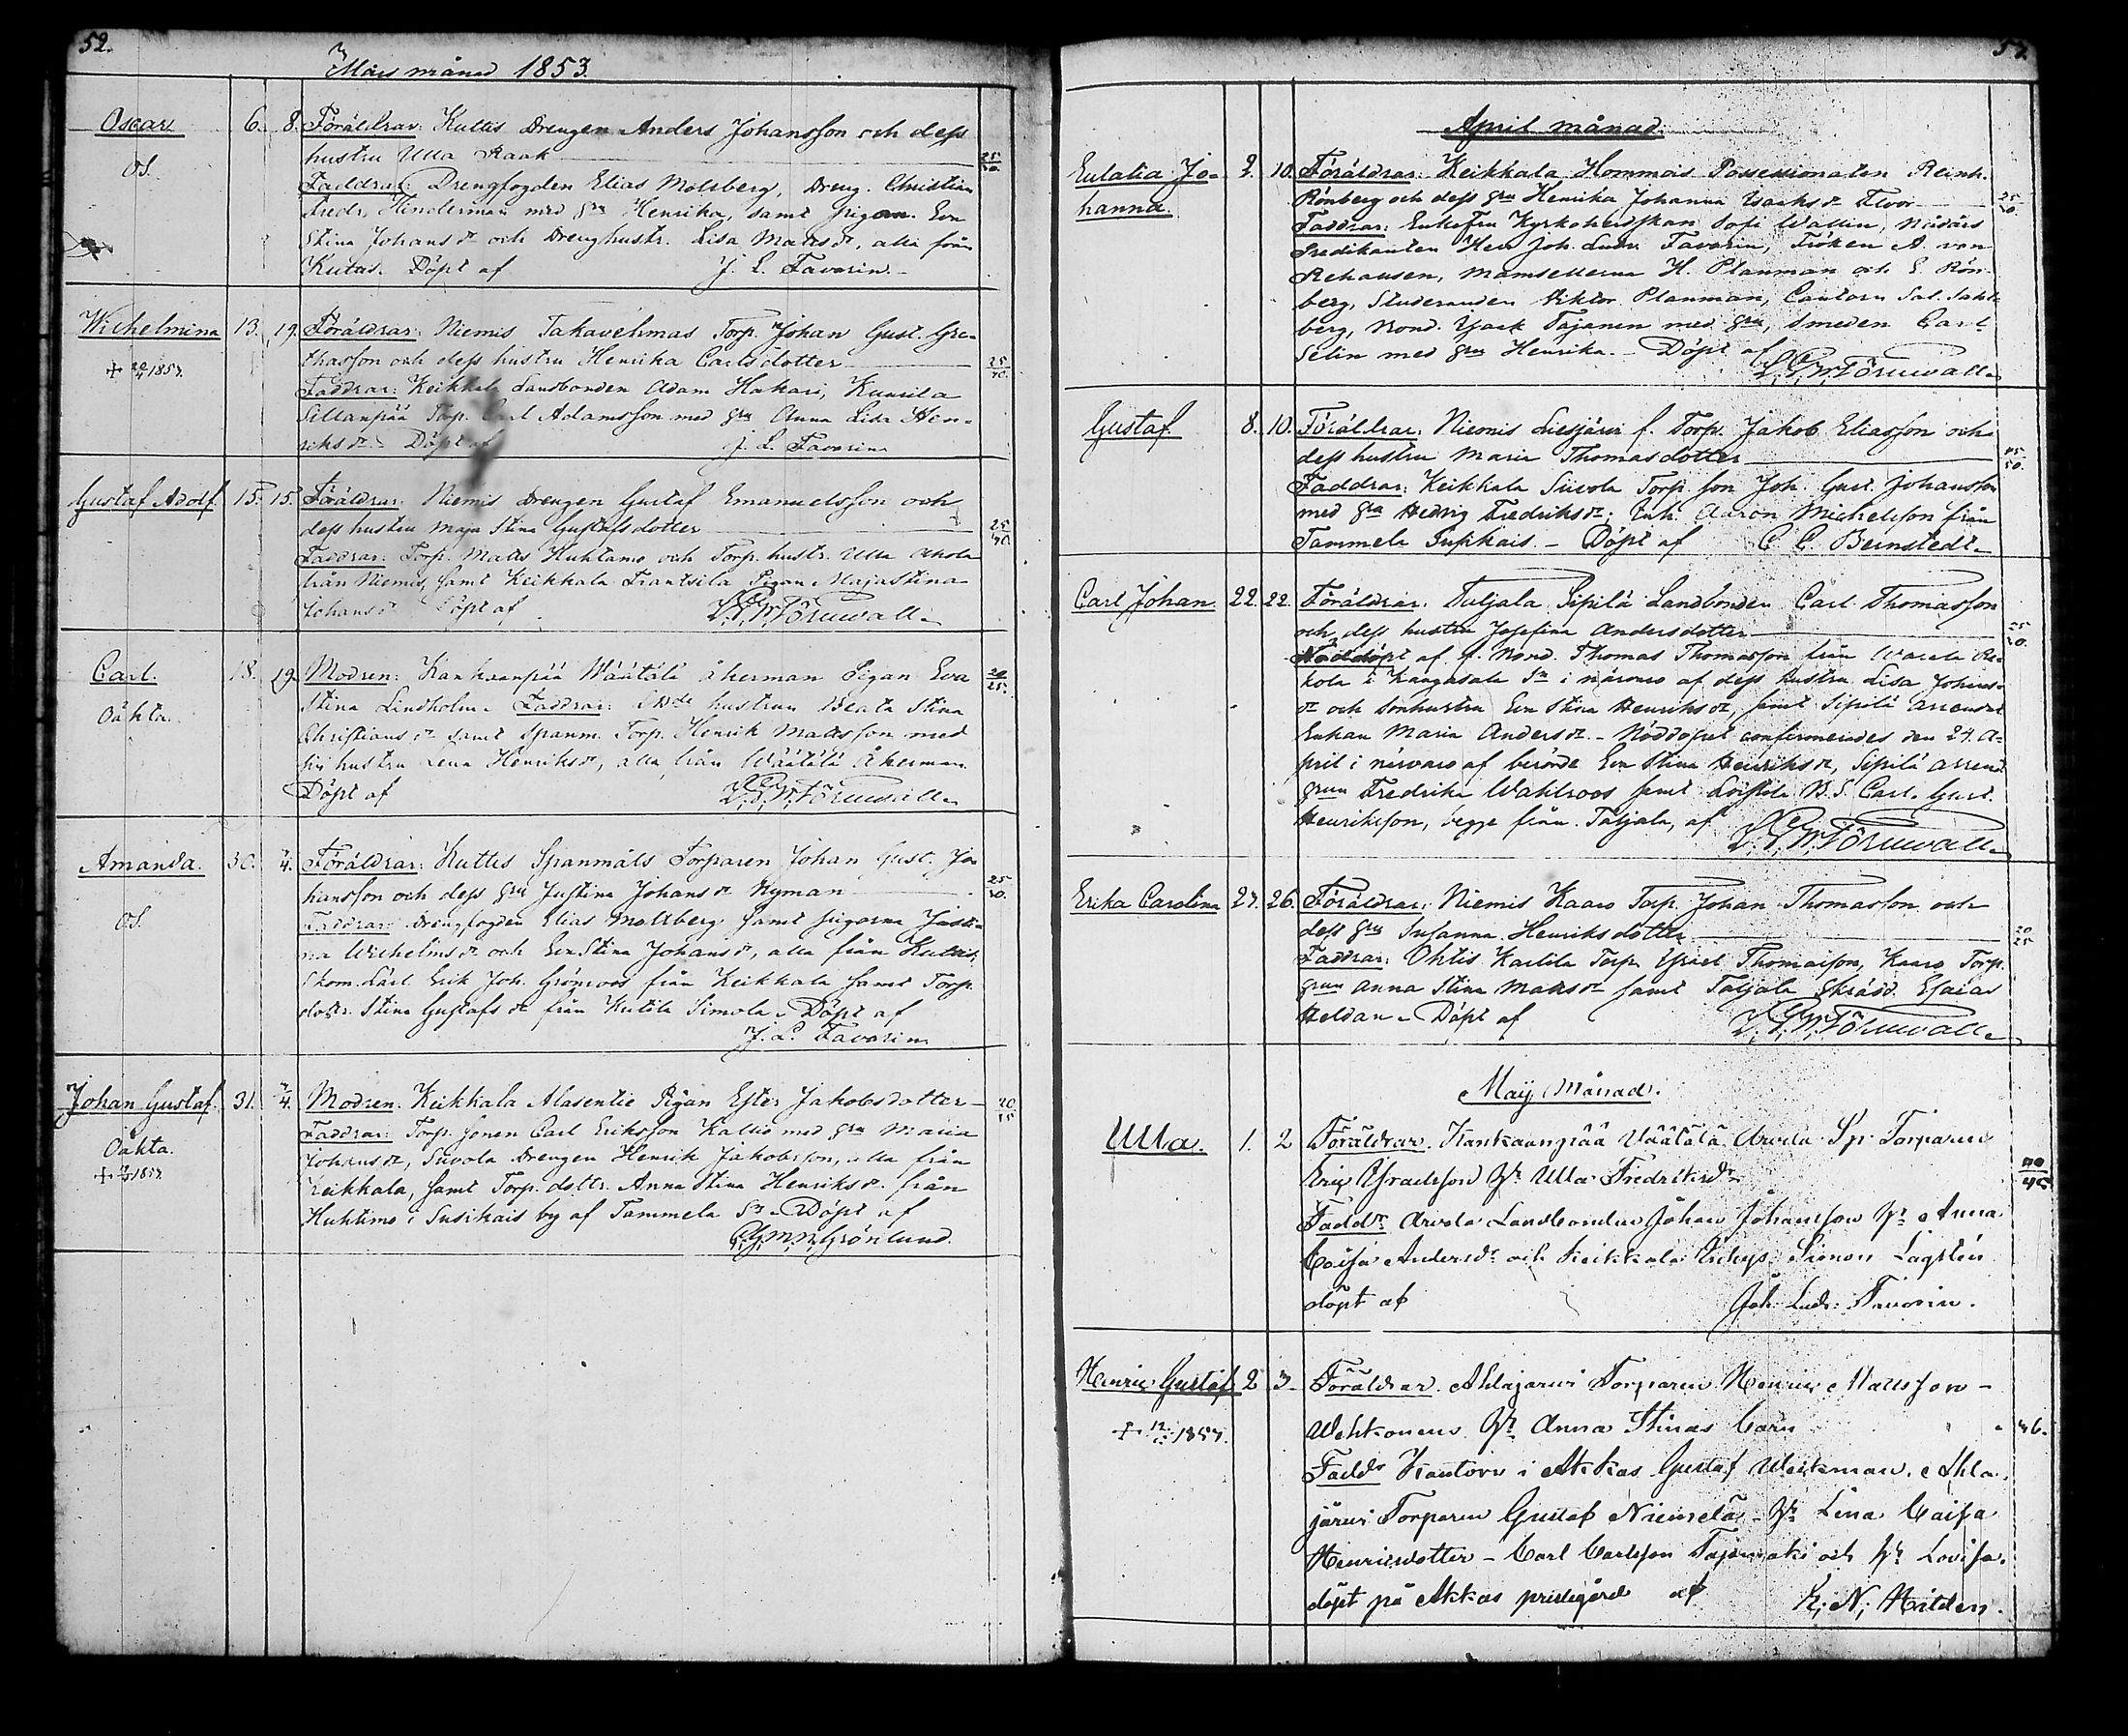 52.
Mars månad 1853.
Oscar 6. 8. Föräldrar: Kuttis Drengen Anders Johansson och dess
hustru Ulla Raak 25/30.
OS.
Faddrar: Drengfogden Elias Molsberg, Dreng. Christian
Fredr. Hinderman med hru Henrika, samt pigan Eva
Stina Johansdr och Drenghustr. Lisa Matsdr, alla från
Kutas. Döpt af J. L. Favorin.
Wilhelmina 13. 19. Föräldrar: Niemis Takavehmas Torp. Johan Gust. Gre-
thasson och dess hustru Henrika Carlsdotter 25/40.
+ 1853.
Faddrar: Keikkala Landbonden Adam Hakari, Kunsila
Sillanpää Torp. Carl Adamsson med hru Anna Lisa Hen-
riksdr. Döpt af J. L. Favorin
Gustaf Adolf. 15. 15. Föräldrar: Niemis Drengen Gustaf Emanuelsson och
dess hustru Maja Stina Gustafsdotter 25/40.
Faddrar: Torp. Matts Huhtamo och Torp. hustr. Ulla
från Niemis, samt Keikkala Frantsila Pigan Maja Stina
Johansdr Döpt af Törnwall
Carl. 18. 19. Modren: Kankaanpää Wäätälä Åkerman Pigan Eva 20/25.
Oäkta.
Stina Lindholm. Faddrar: hustrun Beata Stina
Christiansdr samt Spanm. Torp. Henrik Mattsson med
hustru Lena Henriksdr, alla från Wäätälä Åkerman
Döpt af Törnwall
Amanda. 30. /4. Föräldrar: Kuttis Spanmåls Torparen Johan Gust. Jo-
hansson och dess hru Justina Johansdr Nyman 25/30.
OS.
Faddrar: Drengfogden Elias Molsberg samt pigorna Justi-
na Wilhelmsdr och Eva Stina Johansdr, alla från Kuttis,
Skom. Lärl. Erik Joh. Grönroos från Keikkala samt Torp.
dottr. Stina Gustafsdr från Kutila Simola. Döpt af
J. L. Favorin
Johan Gustaf. 31. /4. Modren. Keikkala Alasentie Pigan Ester Jakobsdotter
Oäkta.
+ 1853.
Faddrar: Torp. sonen Carl Eriksson Kallio med hru Maria
Johansdr, Siivola Drengen Henrik Jakobsson, alla från
Keikkala, samt Torp. dottr. Anna Stina Henriksdr från
Huhtimo i Susikais by af Tammela Sn. Döpt af
Grönlund.
April månad.
Eulalia Jo- 2. 10. Föräldrar: Keikkala Hommois Possessionaten Reinh.
hanna. Rönberg och dess hru Henrika Johanna Isaksdr Elvor 25/30.
Faddrar: Enkefru Kyrkoherdskan Sofi Wallin, Nådårs
Predikanten Herr Joh. Ludv. Favorin, Fröken A. von
Rehausen, Mamsellerna H. Planman och E. Rön-
berg, Studeranden Viktor Planman, Cantorn Sal. Sahl-
berg, Bond. Isak Tajanen med hru, Smeden Carl
Selin med hru Henrika. Döpt af Törnwall
Gustaf. 8. 10. Föräldrar: Niemis Liesjärvi f. Torp. Jakob Eliasson och
dess hustru Maria Thomasdotter
Faddrar: Keikkala Siivola Torp. son Joh. Gust. Johansson
med hru Hedvig Fredriksdr; Inh. Aaron Michelsson från
Tammela Susikais. Döpt af C. C. Bernstedt.
Carl Johan. 22. 22. Föräldrar: Taljala Sipilä Landbonden Carl Thomasson
och dess hustru Josefina Andersdotter 25/30.
Nöddöpt af f. Bond. Thomas Thomasson från
kola i Kangasala Sn i närvaro af dess hustru Lisa Johans-
dr och sonhustru Eva Stina Henriksdr, samt Sipilä
Enkan Maria Andersdr. Nöddopet confirmerades den 24. A-
pril i närvaro af berörde Eva Stina Henriksdr, Sipilä
hrun Fredrika Wahlroos samt B. S. Carl Gust.
Henriksson, begge från Taljala, af Törnwall
Erika Carolina 24. 26. Föräldrar: Niemis Kaaro Torp. Johan Thomasson och
dess hru Susanna Henriksdotter 20/25
Faddrar: Ohtis Karlila Torp. Israel Thomasson, Kaaro Torp.
hrun Anna Stina Matsdr samt Taljala Skrädd. Esaias
Heldan. Döpt af Törnwall
Maij Månad.
Ulla. 1. 2 Föräldrar. Kankaanpää Wäätälä Arvela Sp. Torparen
Eric Israelsson Hr Ulla Fredriksdr
Faddr Arvela Landbonden Johan Johansson Hr Anna
Caisa Andersdr och Keikkala Simon Lagstén
döpt af Joh. Ludv. Favorin.
Henric Gustaf. 2 3. Föräldrar. Ahlajärvi Torparen Henric Mattsson
+ 1853.
Hr Anna Stinas Carn 36.
Faddr Kantorn i Akkas Gustaf Weikman. Ahla-
järvi Torparen Gustaf Niemelä Hr Lena Caisa
Henricsdotter - Carl Carlsson Tapiomäki och Hr Lovisa.
döpt på Akkas prestegård af K. N. Hilden.